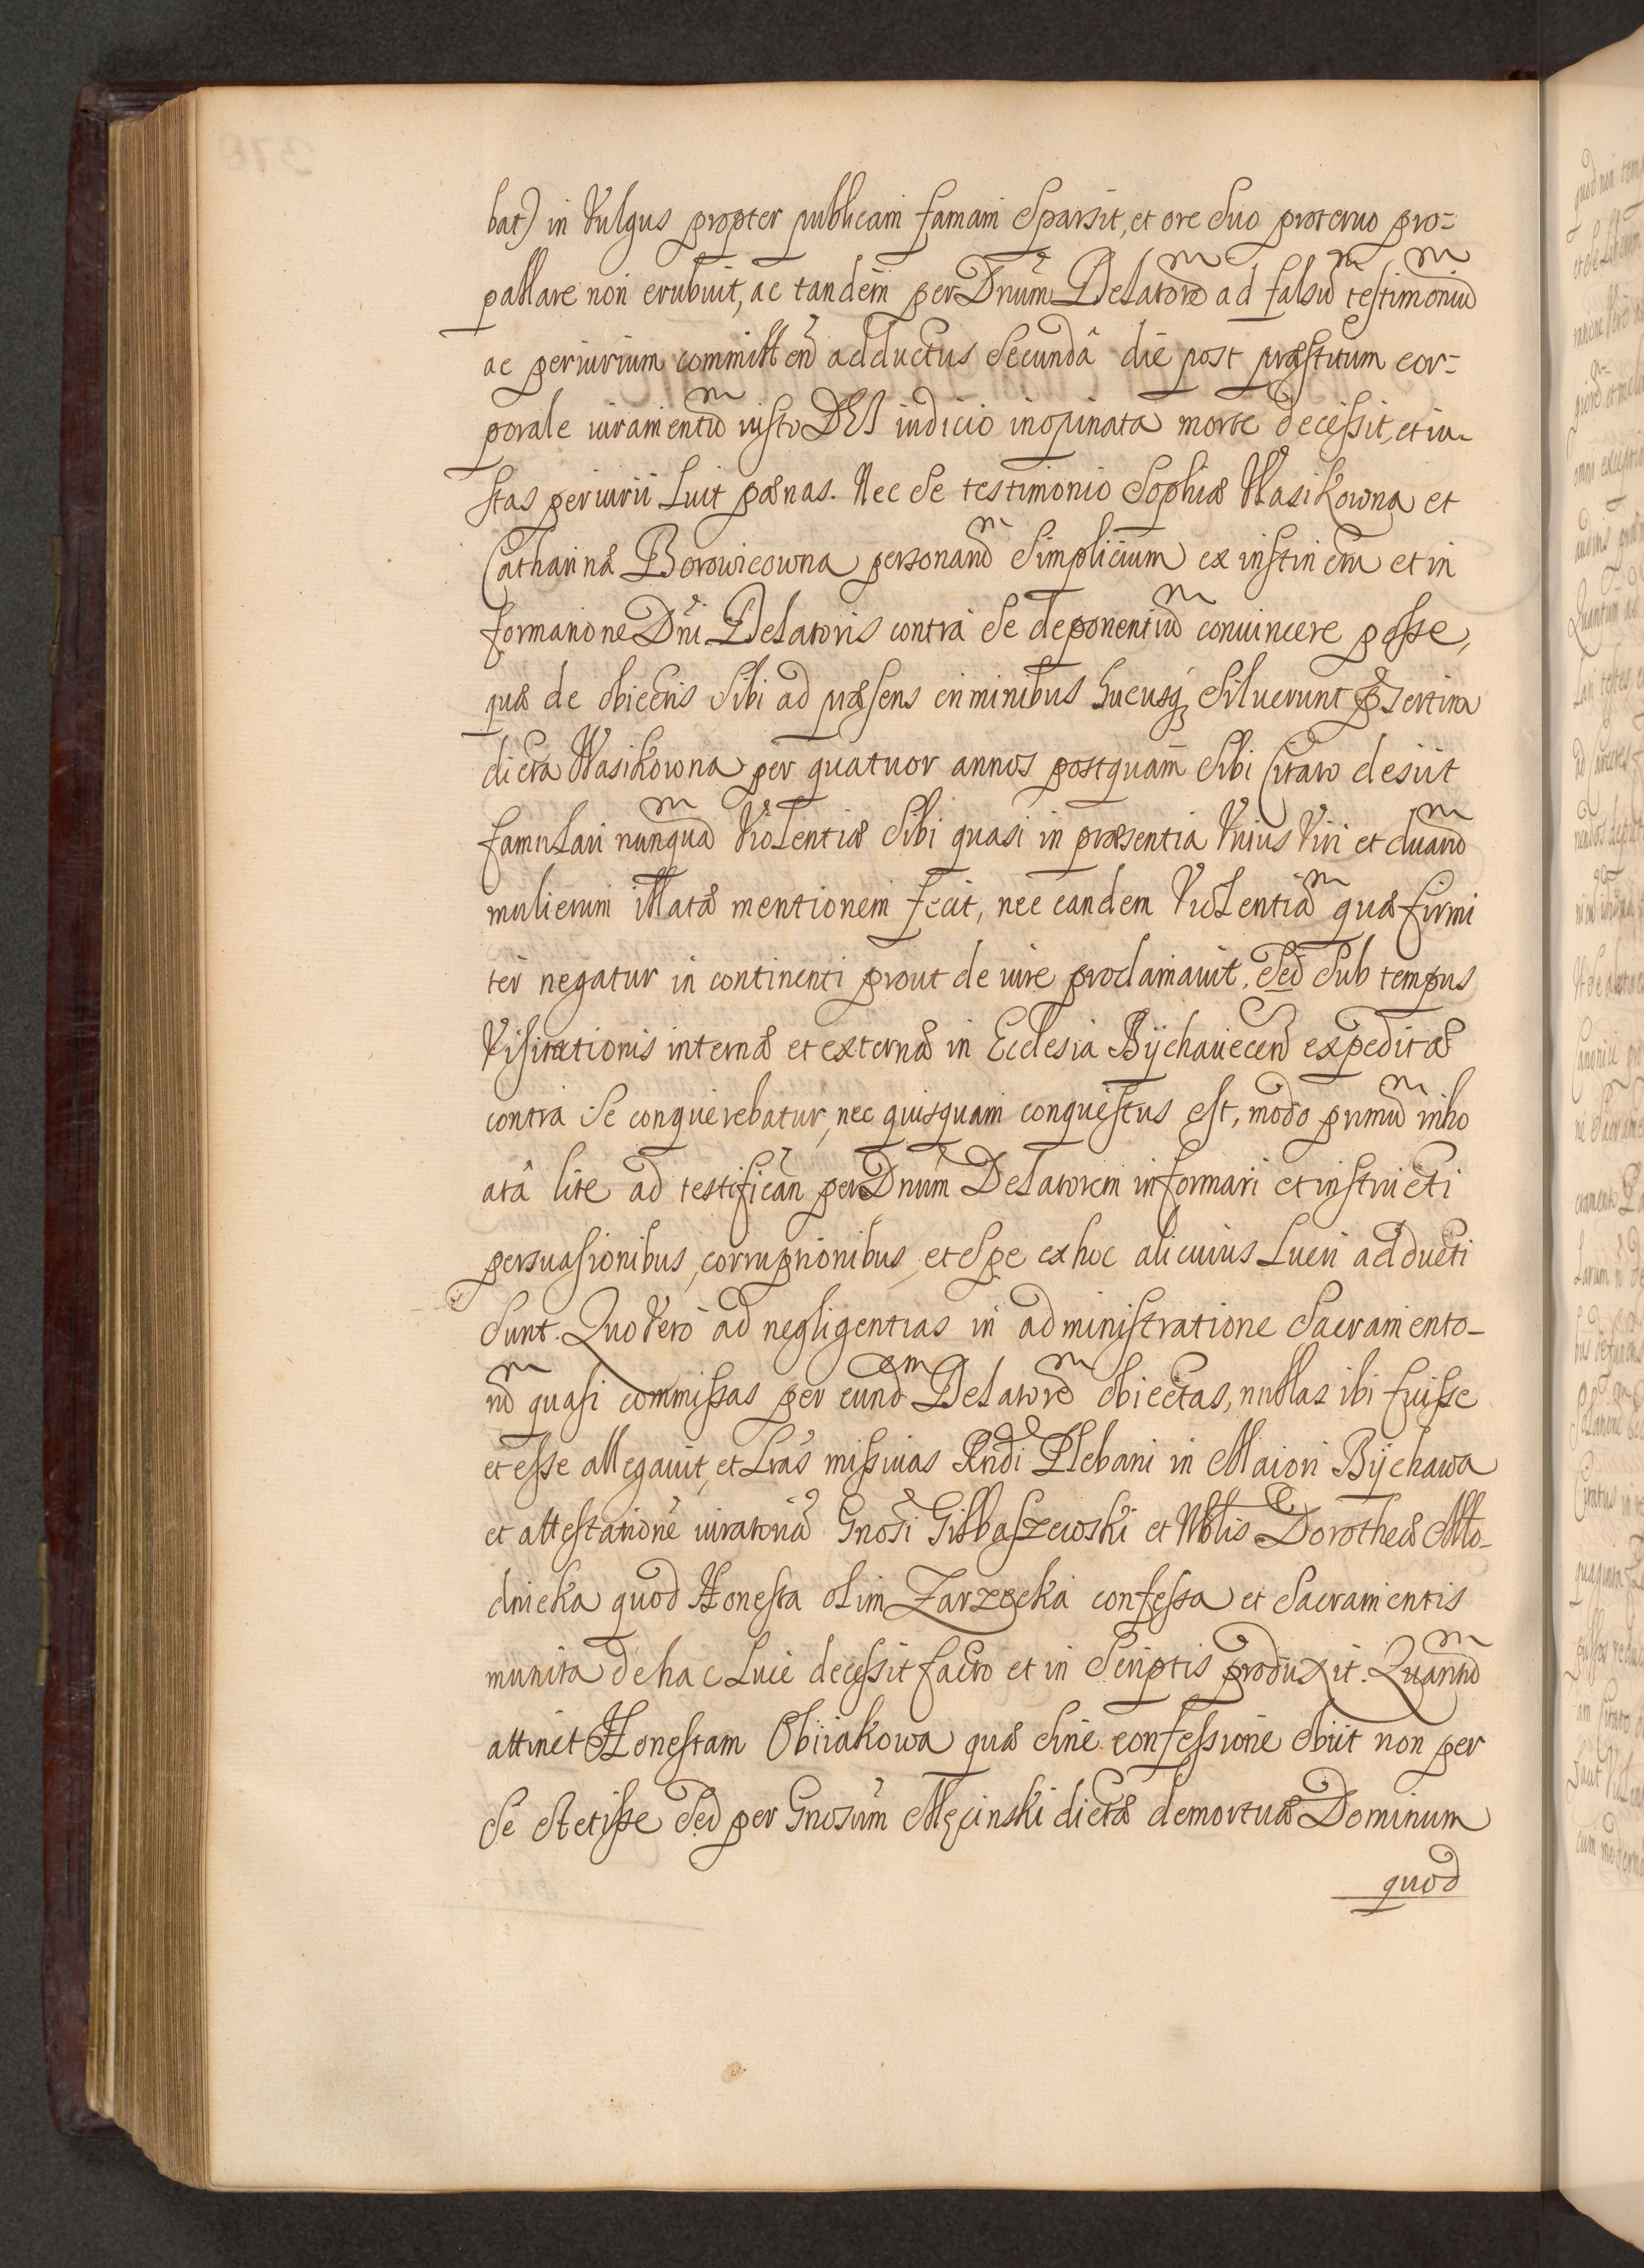 bat) in Vulgus propter publicam famam Sparsit, et ore Suo proteruo pro=
pallare non erubuit, ac tandem per Dnum Delatorem ad falsum testimonium
ac periurium committen adductus Secundâ die post præstitum cor=
porale iuramentum iusto DEI iudicio inopinata morte decessit, et iu=
stas periurii Luit pœnas. Nec Se testimonio Sophiæ Wasikowna et
Catharinæ Borowicowna personarum Simplicium ex instinctu et in
formatione Dni Delatoris contra Se deponentium conuincere posse,
quæ de obiectis Sibi ad præsens criminibus hucusq Siluerunt præsertim
dicta Wasikowna per quatuor annos postquam Sibi Citato desiit
famulari nunquam Violentiæ Sibi quasi in præsentia Vnius Viri et duarum
mulierum illatæ mentionem fecit, nec eandem Violentiam quæ firmi
ter negatur in continenti prout de iure proclamauit, Sed Sub tempus
Visitationis internæ et externæ in Ecclesia Bychauecen expeditæ
contra Se conquerebatur, nec quisquam conquestus est, modo primum inho
atâ lite ad testifican per Dnum Delatorem informari et instructi
persuasionibus, corruptionibus, et Spe ex hoc alicuius Lucri adducti
Sunt. Quo Vero ad negligentias in administratione Sacramento=
rum quasi commissas per eundem Delatorem obiectas, nullas ibi fuisse
et esse allegauit, et Lras missiuas Rndi Plebani in Maiori Bychawa
et attestationem iuratoriam Gnosi Gilbaszewski et Nblis Dorotheæ Mło=
dnicka quod Honesta olim Zarzecka confessa et Sacramentis
munita de hac Luce decessit facto et in Scriptis produxit. Quantum
attinet Honestam Obiiakowa quæ Sine confessione obiit non per
Se Stetisse Sed per Gnosum Męcinski dictæ demortuæ Dominum
quod